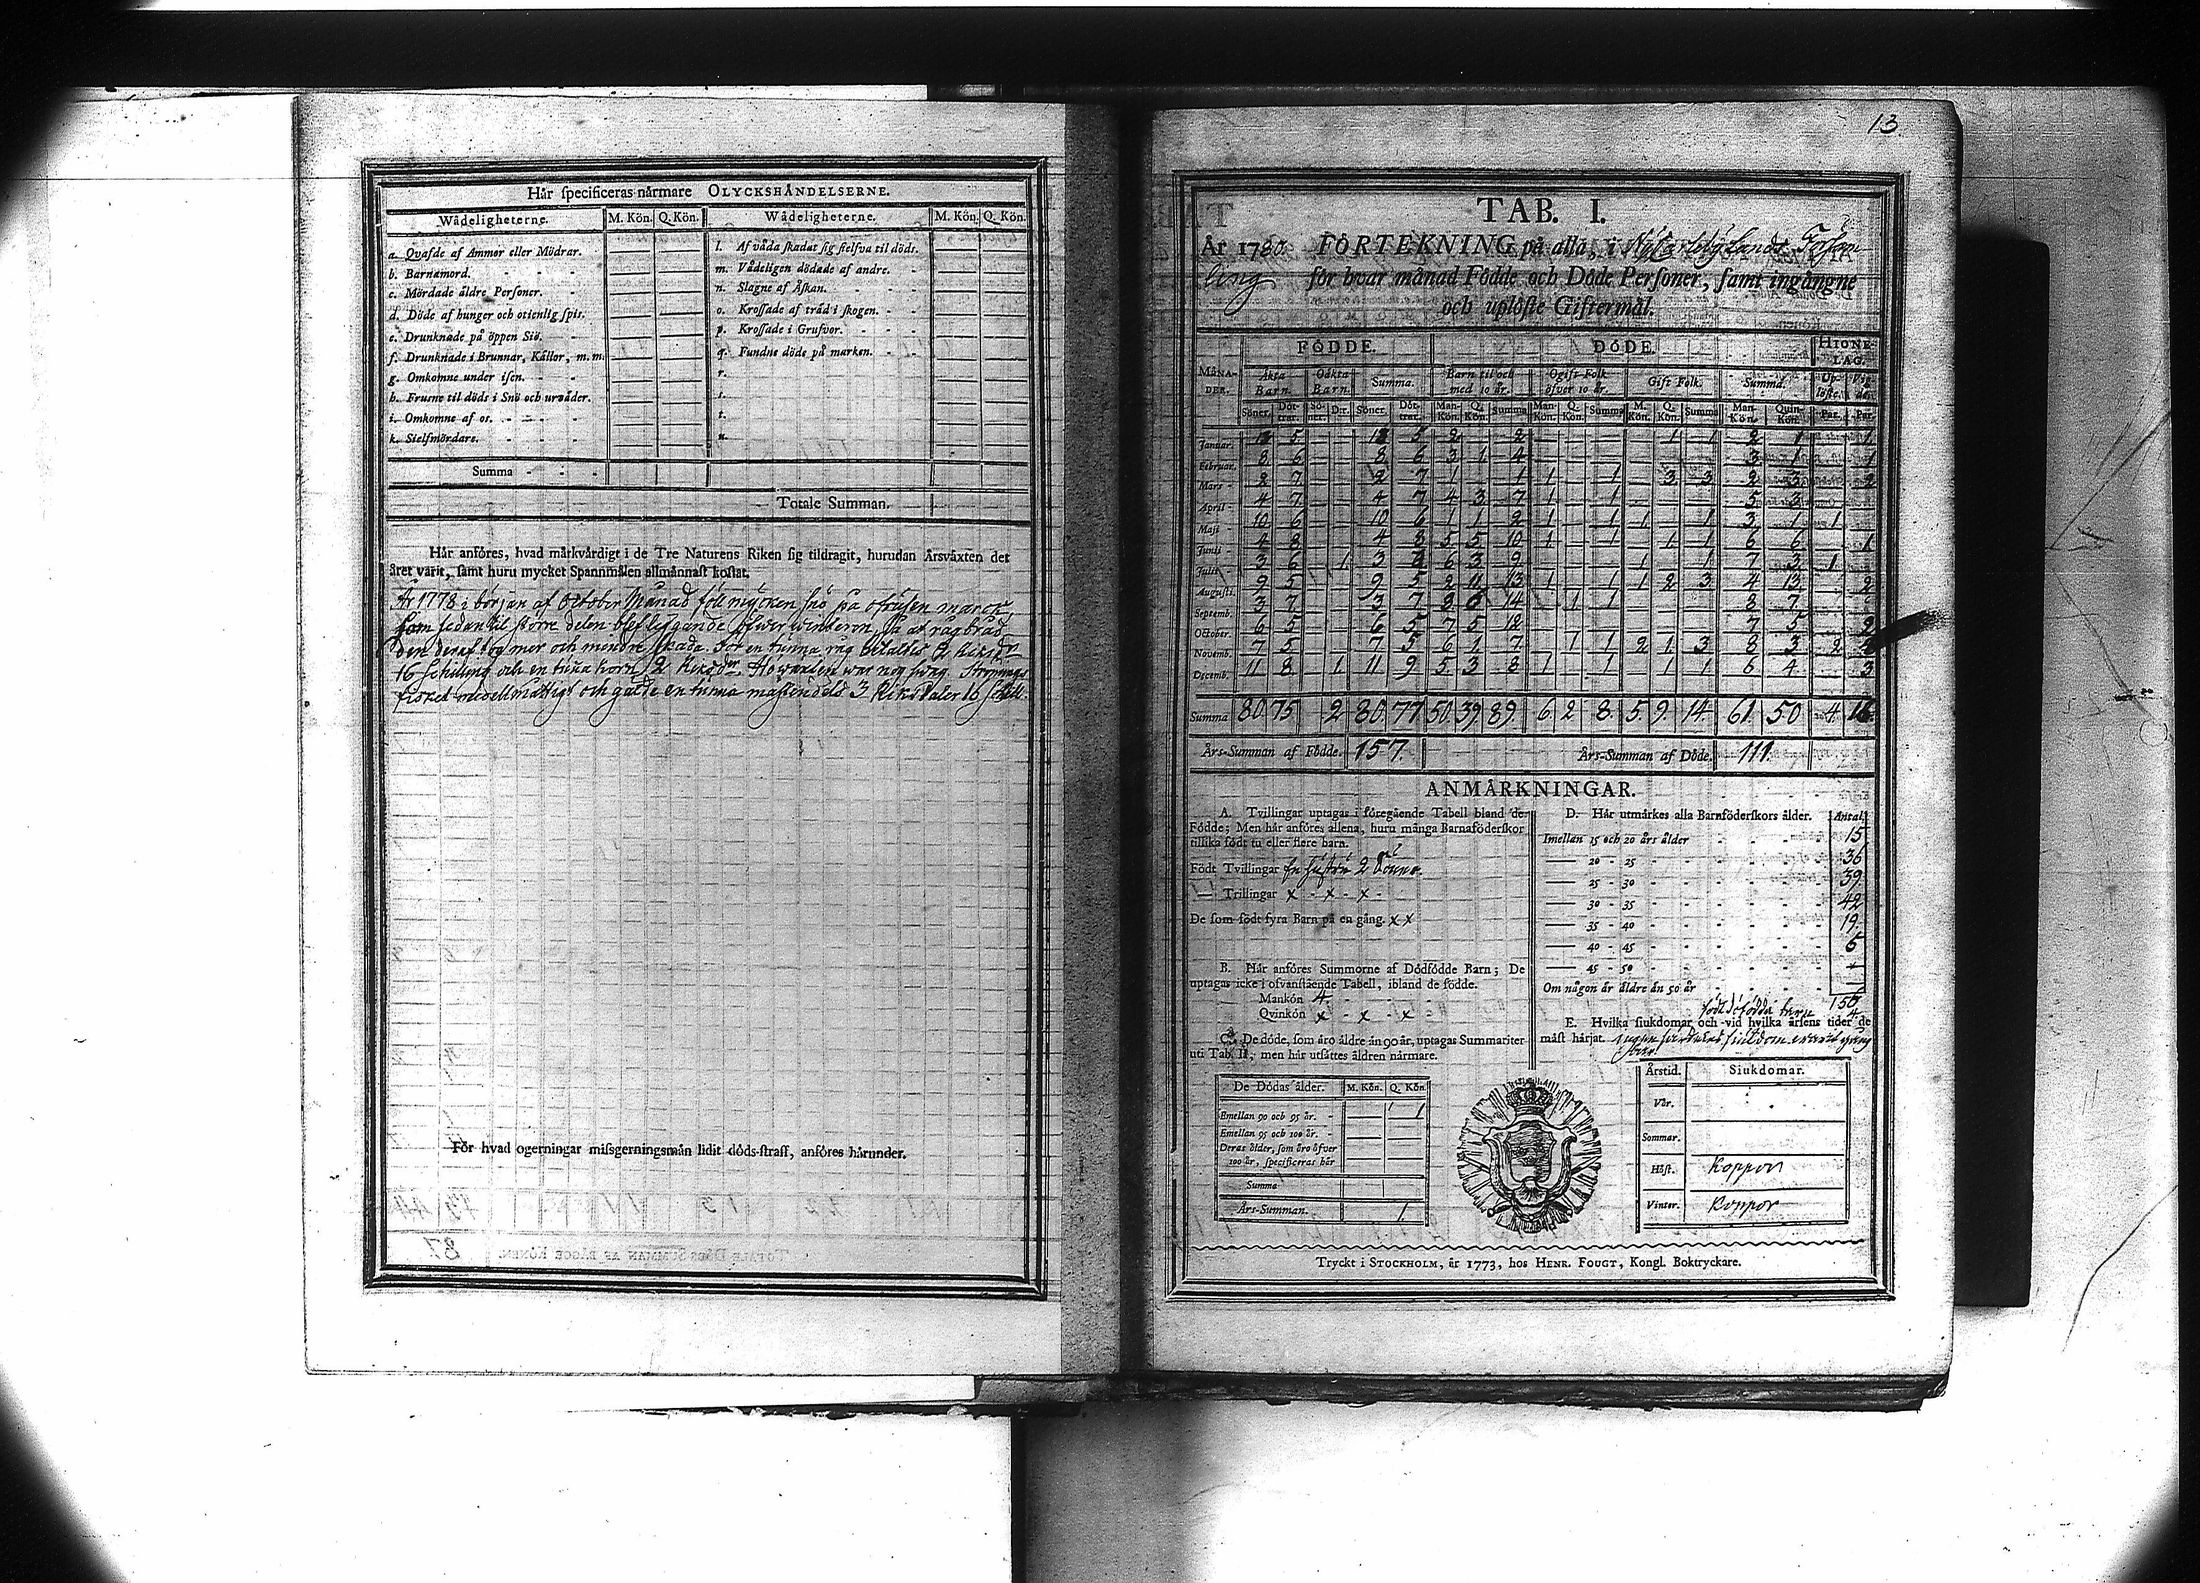 Här specificeras närmare OLYCKSHÄNDELSERNE.
Wådeligheterne. M. Kön. Q. Kön. Wådeligheterne. M. Kön. Q. Kön.
a. Qvafde af Ammor eller Mödrar.
b. Barnamord.
c. Mördade äldre Personer.
d. Döde af hunger och otienlig spis.
e. Drunknade på öppen Siö.
f. Drunknade i Brunnar, Källor, m. m.
g. Omkomne under isen.
h. Frusne til döds i Snö och urväder.
i. Omkomne af os.
k. Sielfmördare.
l. Af våda skadat sig sielfva til döds.
m. Vådeligen dödade af andre.
n. Slagne af Åskan.
o. Krossade af träd i skogen.
p. Krossade i Grufvor.
q. Fundne döde på marken.
r.
s.
t.
u.
Summa
Totale Summan.
Här anföres, hvad märkvärdigt i de Tre Naturens Riken sig tildragit, hurudan Årsväxten det
året varit, samt huru mycket Spannmålen allmännast kostat.
År 1778 i början af October Månad föll mycken snö på ofrusen marck
som sedan til större delen blef liggande öfwer winteren, så at rågbråd
den deraf tog mer och mindre skada. För en tunna råg betaltes 2 Riksdr
16 Schilling och en tunna korn 2 Riksdr.
3 Riksdaler 16 schill.
För hvad ogerningar missgerningsmän lidit döds-straff, anföres härunder.
13
TAB. I.
År 1780 FÖRTEKNING på alla, i Nycarleby Lands Försam
ling för hvar månad Födde och Döde Personer, samt ingångne
och uplöste Giftermål.
MÅNA-DER. FÖDDE. DÖDE. HIONE-LAG.
Äkta Barn. Oäkta Barn. Summa. Barn til och med 10 år. Ogift Folk öfver 10 år. Gift Folk. Summa. Up-löste. Vig-de.
Söner. Döt-trar. Sö-ner. Dr. Söner. Döt-trar. Man-Kön. Q. Kön. Summa Man-Kön. Q. Kön. Summa M. Kön. Q. Kön. Summa Man-Kön. Quin-Kön. Par. Par.
Januar. 12 5 12 5 2 2 1 1 2 1 1
Februar. 8 6 8 6 3 1 4 3 1 1
Mars 2 7 2 7 1 1 1 1 3 3 2 3 2
April 4 7 4 7 4 3 7 1 1 5 3
Maji 10 6 10 6 1 1 2 1 1 1 1 3 1 1
Junii 4 8 4 8 5 5 10 1 1 1 1 6 6 1
Julii 3 6 1 3 7 6 3 9 1 1 7 3 1
Augusti. 9 5 9 5 2 11 13 1 1 1 2 3 4 13 2
Septemb. 3 7 3 7 8 6 14 1 1 8 7
October. 6 5 6 5 7 5 12 7 5 2
Novemb. 7 5 7 5 6 1 7 1 1 2 1 3 8 3 2
Decemb. 11 8 1 11 9 5 3 8 1 1 1 1 6 4 3
Summa 80. 75 2 80. 77 50. 39 89. 6. 2 8. 5. 9. 14. 61. 50 4. 16.
Års-Summan af Födde. 157. Års-Summan af Döde. 111.
ANMÄRKNINGAR.
A. Tvillingar uptagas i föregående Tabell bland de
Födde; Men här anföres allena, huru många Barnaföderskor
tillika födt tu eller flere barn.
Födt Tvillingar En hustru 2 Söner.
— Trillingar x - x - x -
De som födt fyra Barn på en gång. x x
B. Här anföres Summorne af Dödfödde Barn; De
uptagas icke i ofvanstående Tabell, ibland de födde.
Mankön 4.
Qvinkön x - x - x
C. De döde, som äro äldre än 90 år, uptagas Summariter
uti Tab. II; men här utsättes åldren närmare.
De Dödas ålder. M. Kön. Q. Kön.
Emellan 90 och 95 år. 1
Emellan 95 och 100 år.
Deras ålder, som äro öfver
100 år, specificeras här
Summa
Års-Summan. 1.
D. Här utmärkes alla Barnföderskors ålder. Antal.
Imellan 15 och 20 års ålder 15
— 20 - 25 36
— 25 - 30 39.
— 30 - 35 42
— 35 - 40 19.
— 40 - 45 5
— 45 - 50
Om någon är äldre än 50 år
156
födt dödfödda barn 4
E. Hvilka siukdomar och vid hvilka årsens tider de
mäst härjat. ingen särdeles siukdom warit gång
bar.
Årstid. Siukdomar.
Vår.
Sommar.
Höst. Koppor
Vinter. Koppor
Tryckt i STOCKHOLM, år 1773, hos HENR. FOUGT, Kongl. Boktryckare.